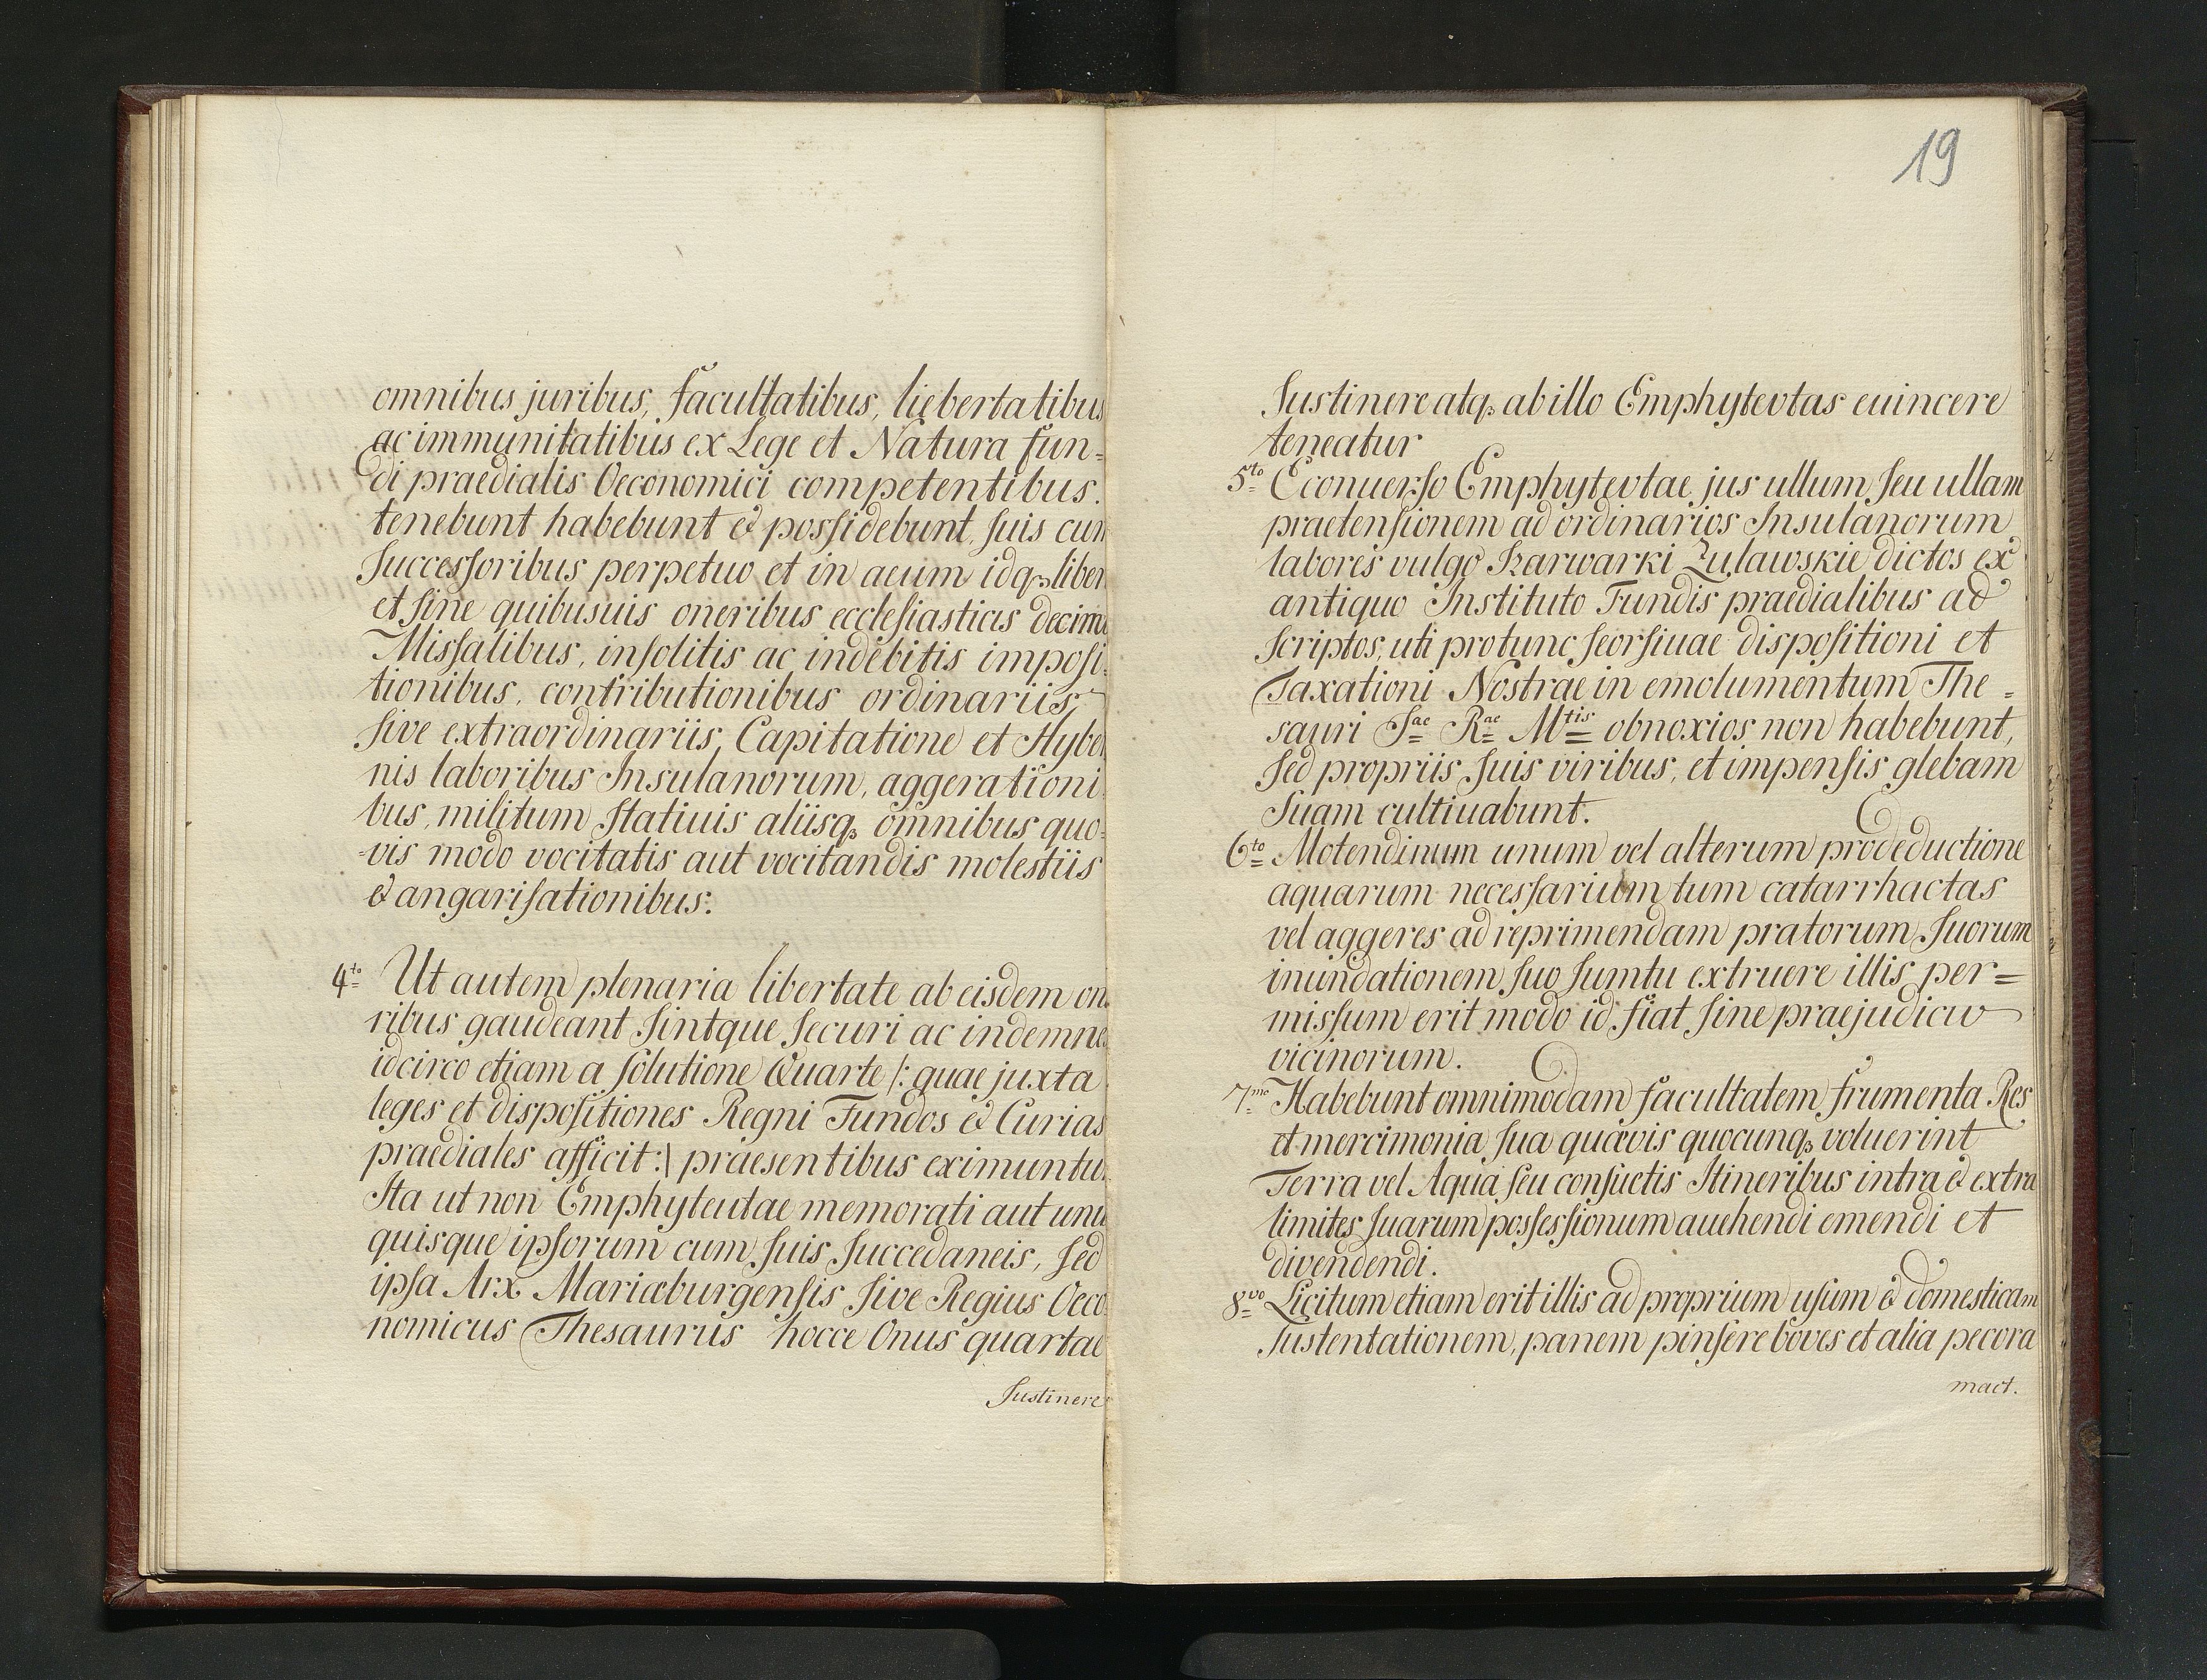 omnibus juribus, facultatibus, liebertatibus
ac immunitatibus ex Lege et Natura fun=
di praedialis Oeconomici competentibus.
tenebunt habebunt & possidebunt, suis cum
Successoribus perpetuo et in aeum idq, liber
et sine quibusuis oneribus ecclesiasticis decim
Missalibus, insolitis ac indebitis imposi
tionibus, contributionibus ordinariis,
sive extraordinariis, Capitatione et Hyber
nis laboribus Insulanorum, aggerationi
bus, militum stativis aliisq, omnibus quo=
-vis modo vocitatis aut vocitandis molestiis
& angarisationibus:.
4to Ut autem plenaria libertate ab eisdem on
ribus gaudeant sintque securi ac indemne
idcirco etiam a solutione Quarte /: quae juxta
leges et dispositiones Regni Fundos & Curias
praediales afficit :/ praesentibus eximuntu
Ita ut non Emphyteutae memorati aut unu
quisque ipsorum cum suis succedaneis, sed
ipsa Arx Mariaeburgensis sive Regius Oeco
nomicus Thesaurus hocce Onus quartae
Sustinere
19
Sustinere atq, ab illo Emphytevtas euincere
teneatur
5to Econuerso Emphytevtae jus ullum seu ullam
praetensionem ad ordinarios Insulanorum
labores vulgo Szarwarki Zulawskie dictos ex
antiquo Instituto Fundis praedialibus ad
scriptos, uti pro tunc seorsiuae dispositioni et
Taxationi Nostrae in emolumentum The=
sauri Sae Rae Mtis obnoxios non habebunt,
sed propriis suis viribus, et impensis glebam
suam cultiuabunt.
6to Molendinum unum vel alterum pro deductione
aquarum necessarium tum catarrhactas
vel aggeres ad reprimendam pratorum suorum
inundationem suo sumtu extruere illis per=
missum erit modo id fiat sine praejudicio
vicinorum.
7mo Habebunt omnimodam facultatem frumenta Res
et mercimonia sua quaevis quocunq, voluerint
Terra vel Aqua seu consuetis Itineribus intra & extra
limites suarum possessionum auehendi emendi et
divendendi.
8vo Licitum etiam erit illis ad proprium usum & domesticam
Sustentationem, panem pinsere boves et alia pecora
mact.